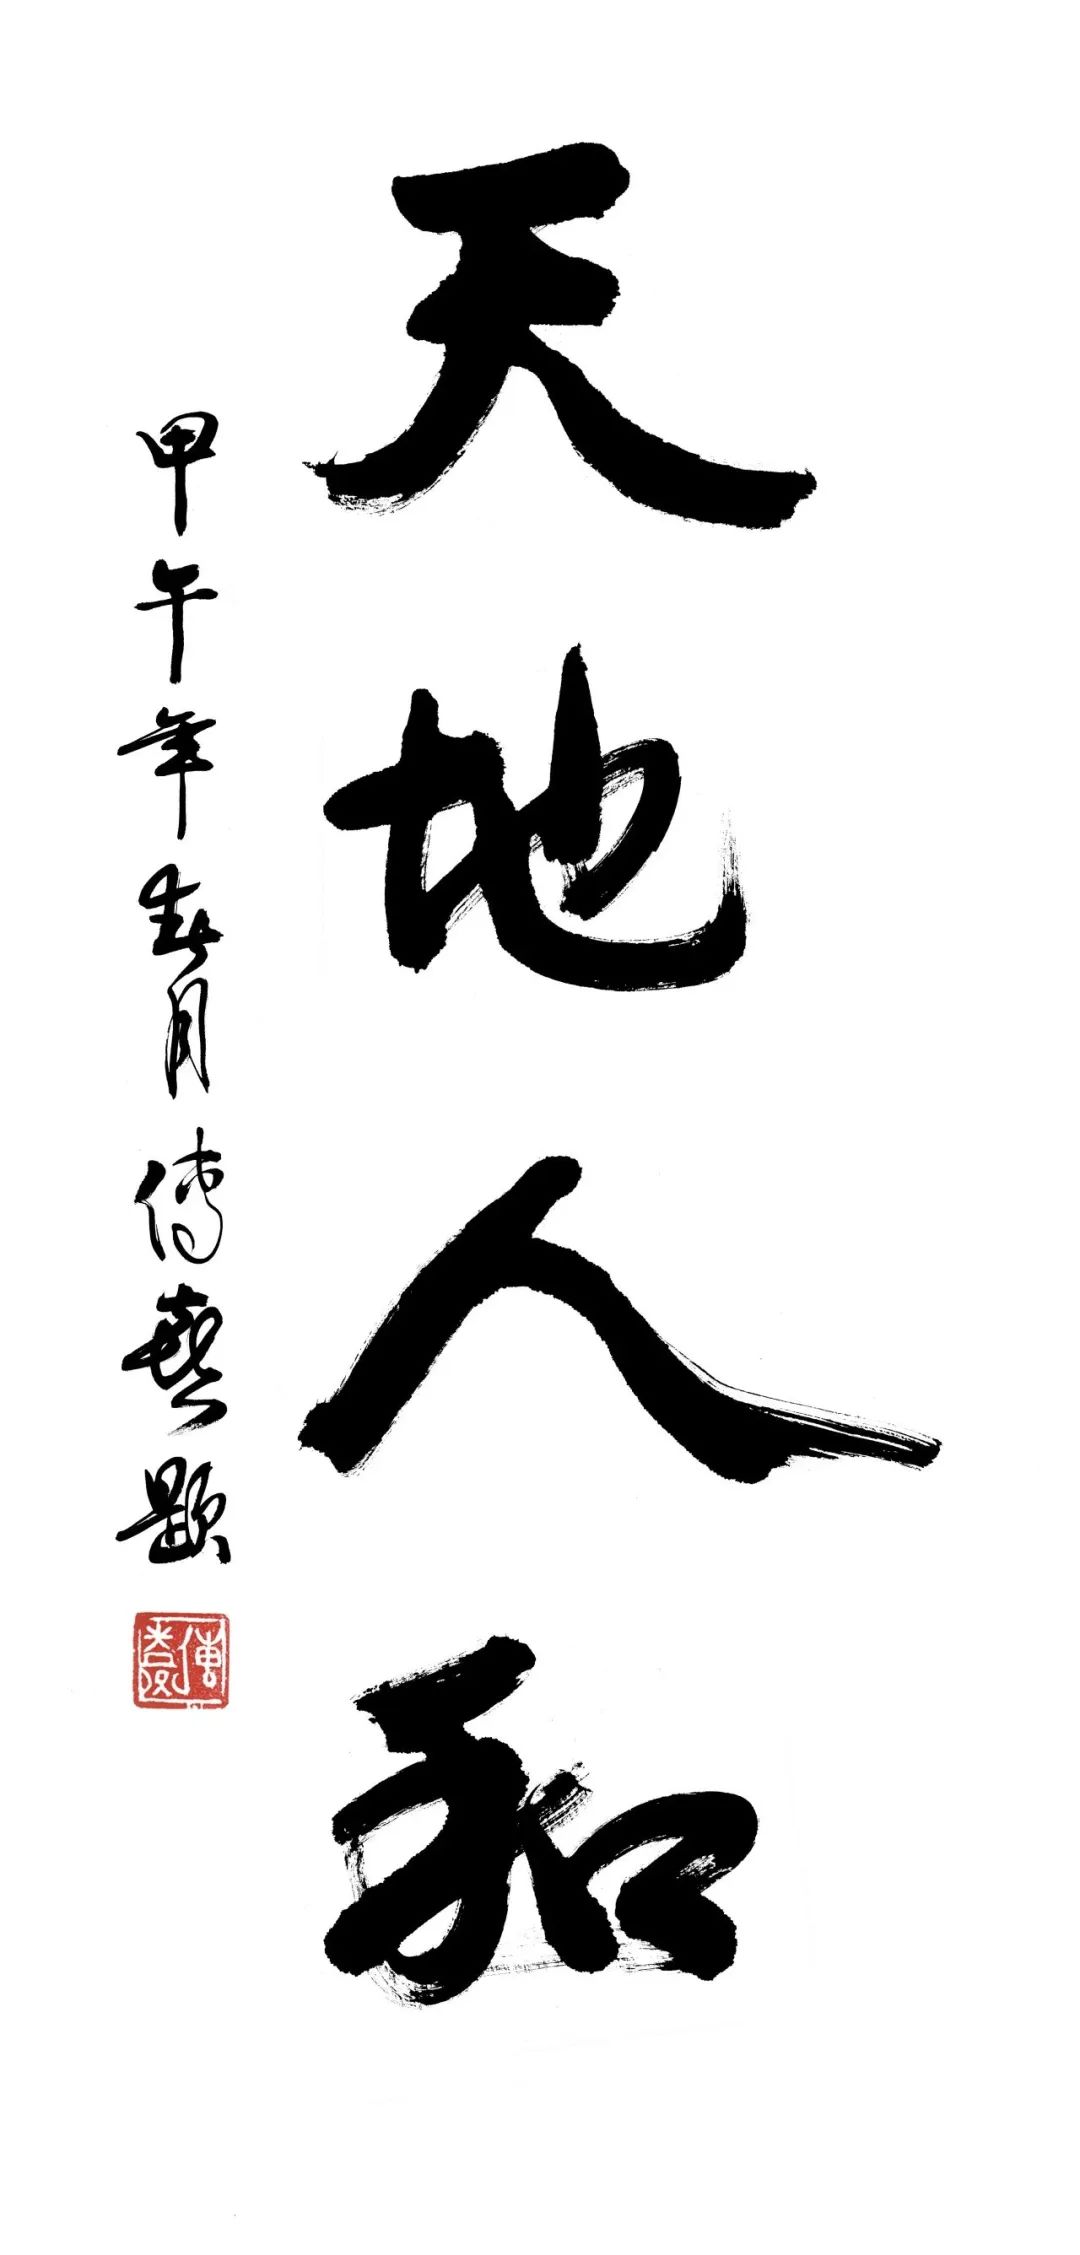 天地人和
甲午年春月傅藝題